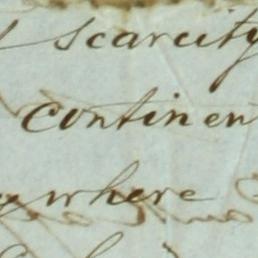 scarcity
continen
ywhere